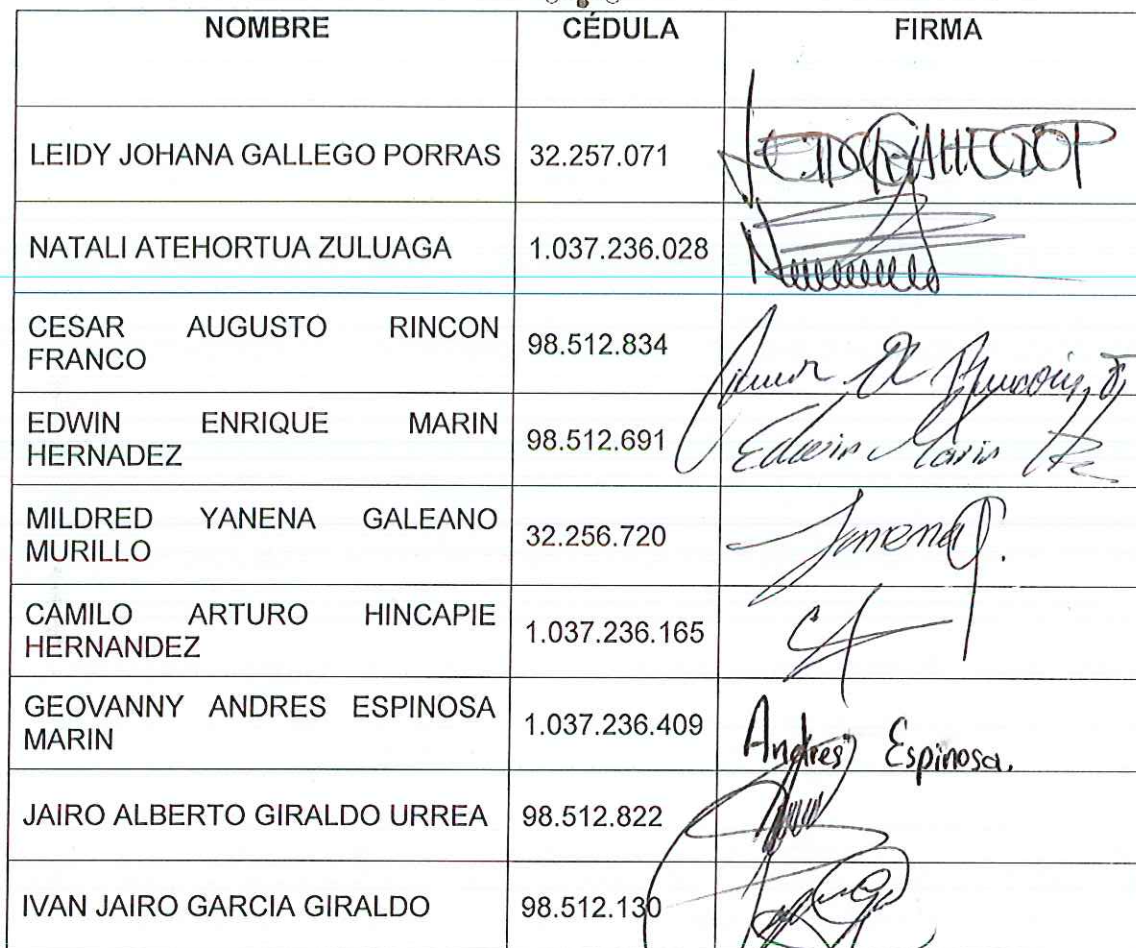 NOMBRE CÉDULA FIRMA
LEIDY JOHANA GALLEGO PORRAS 32.257.071
NATALI ATEHORTUA ZULUAGA 1.037.236.028
CESAR AUGUSTO RINCON
FRANCO 98.512.834
EDWIN ENRIQUE MARIN
HERNADEZ 98.512.691 Edwin Marin
MILDRED YANENA GALEANO
MURILLO 32.256.720
CAMILO ARTURO HINCAPIE
HERNANDEZ 1.037.236.165
GEOVANNY ANDRES ESPINOSA
MARIN 1.037.236.409 Andres Espinosa.
JAIRO ALBERTO GIRALDO URREA 98.512.822
IVAN JAIRO GARCIA GIRALDO 98.512.130